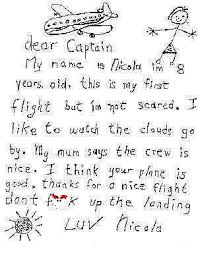 dear Captain
My name is Nicola im 8
years old. this is my first
flight but im not scared. I
like to watch the clouds go
by. My mum says the crew is
nice. I think your plane is
good. thanks for a nice flight
dont f..k up the landing
LUV Nicola